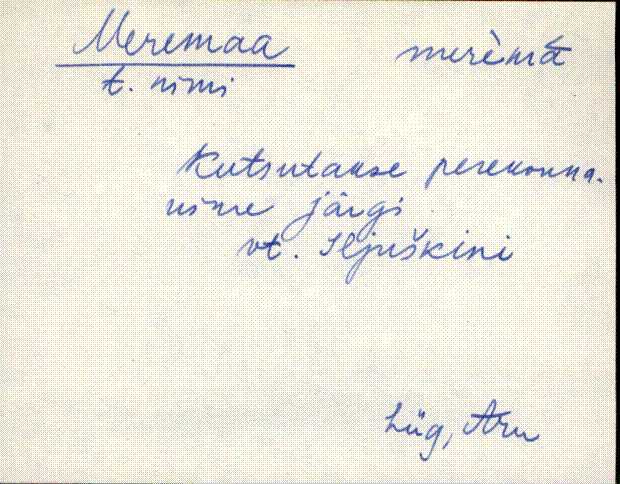 Meremaa merèmā
t. nimi
Kutsutakse perekonna-
nime järgi
vt. Iljuškini
Lüg, Aru